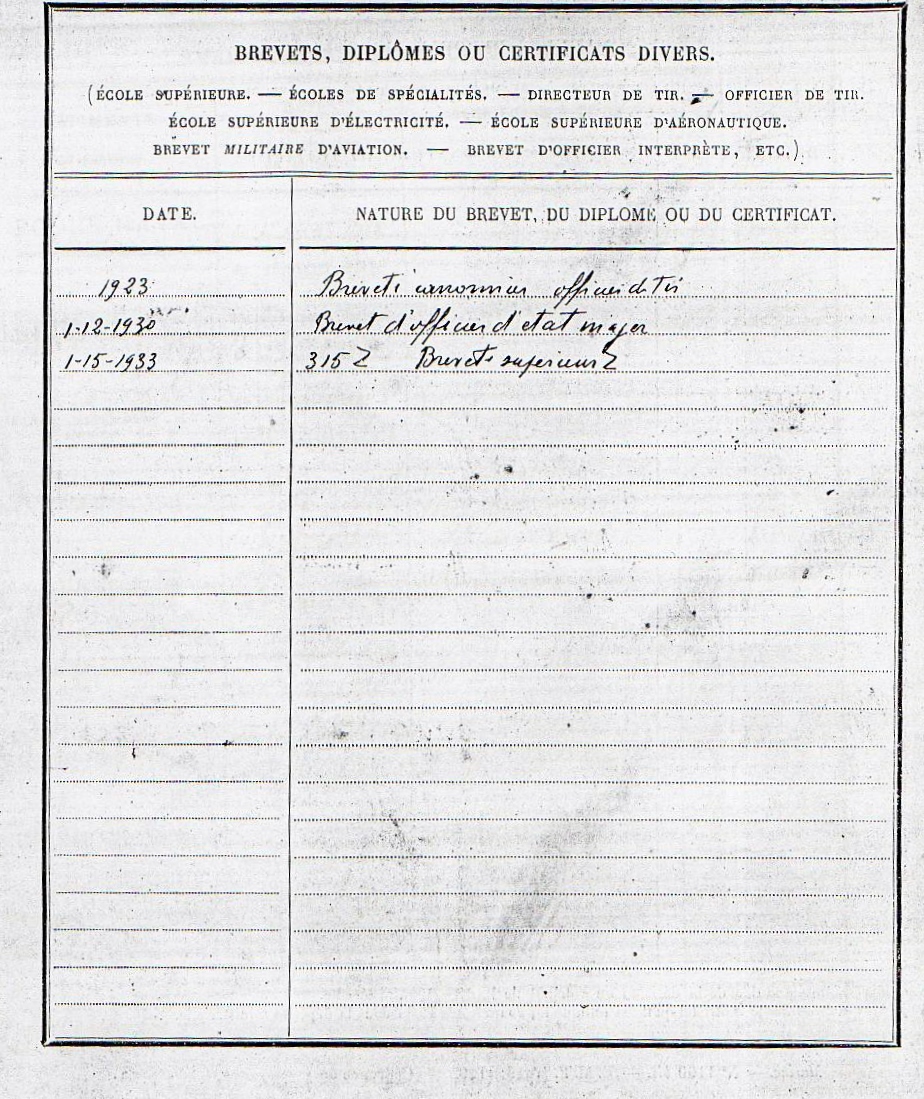 BREVETS, DIPLÔMES OU CERTIFICATS DIVERS.
(ÉCOLE SUPÉRIEURE. — ÉCOLES DE SPÉCIALITÉS. — DIRECTEUR DE TIR. — OFFICIER DE TIR.
ÉCOLE SUPÉRIEURE D'ÉLECTRICITÉ. — ÉCOLE SUPÉRIEURE D'AÉRONAUTIQUE.
BREVET MILITAIRE D'AVIATION. — BREVET D'OFFICIER INTERPRÈTE, ETC.)
DATE. NATURE DU BREVET, DU DIPLOME OU DU CERTIFICAT.
1923 Breveté canonnier officier de Tir
1-12-1930 Brevet d'officier d'etat major
1-15-1933 315 Z Breveté superieur Z